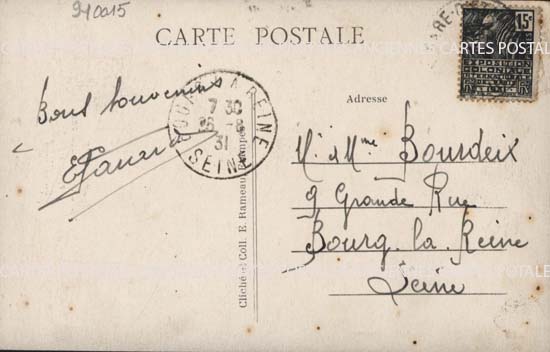 940015
CARTE POSTALE
ANCIENNES CARTES POSTALES
15c
EXPOSITION
COLONIALE
Bons souvenirs
BOURG-LA-REINE
7 30
31
SEINE
Adresse
M. et Mme Bourdeix
9 Grande Rue
Bourg. la. Reine
Seine
Cliché et Coll. E. Rameau, Etampes